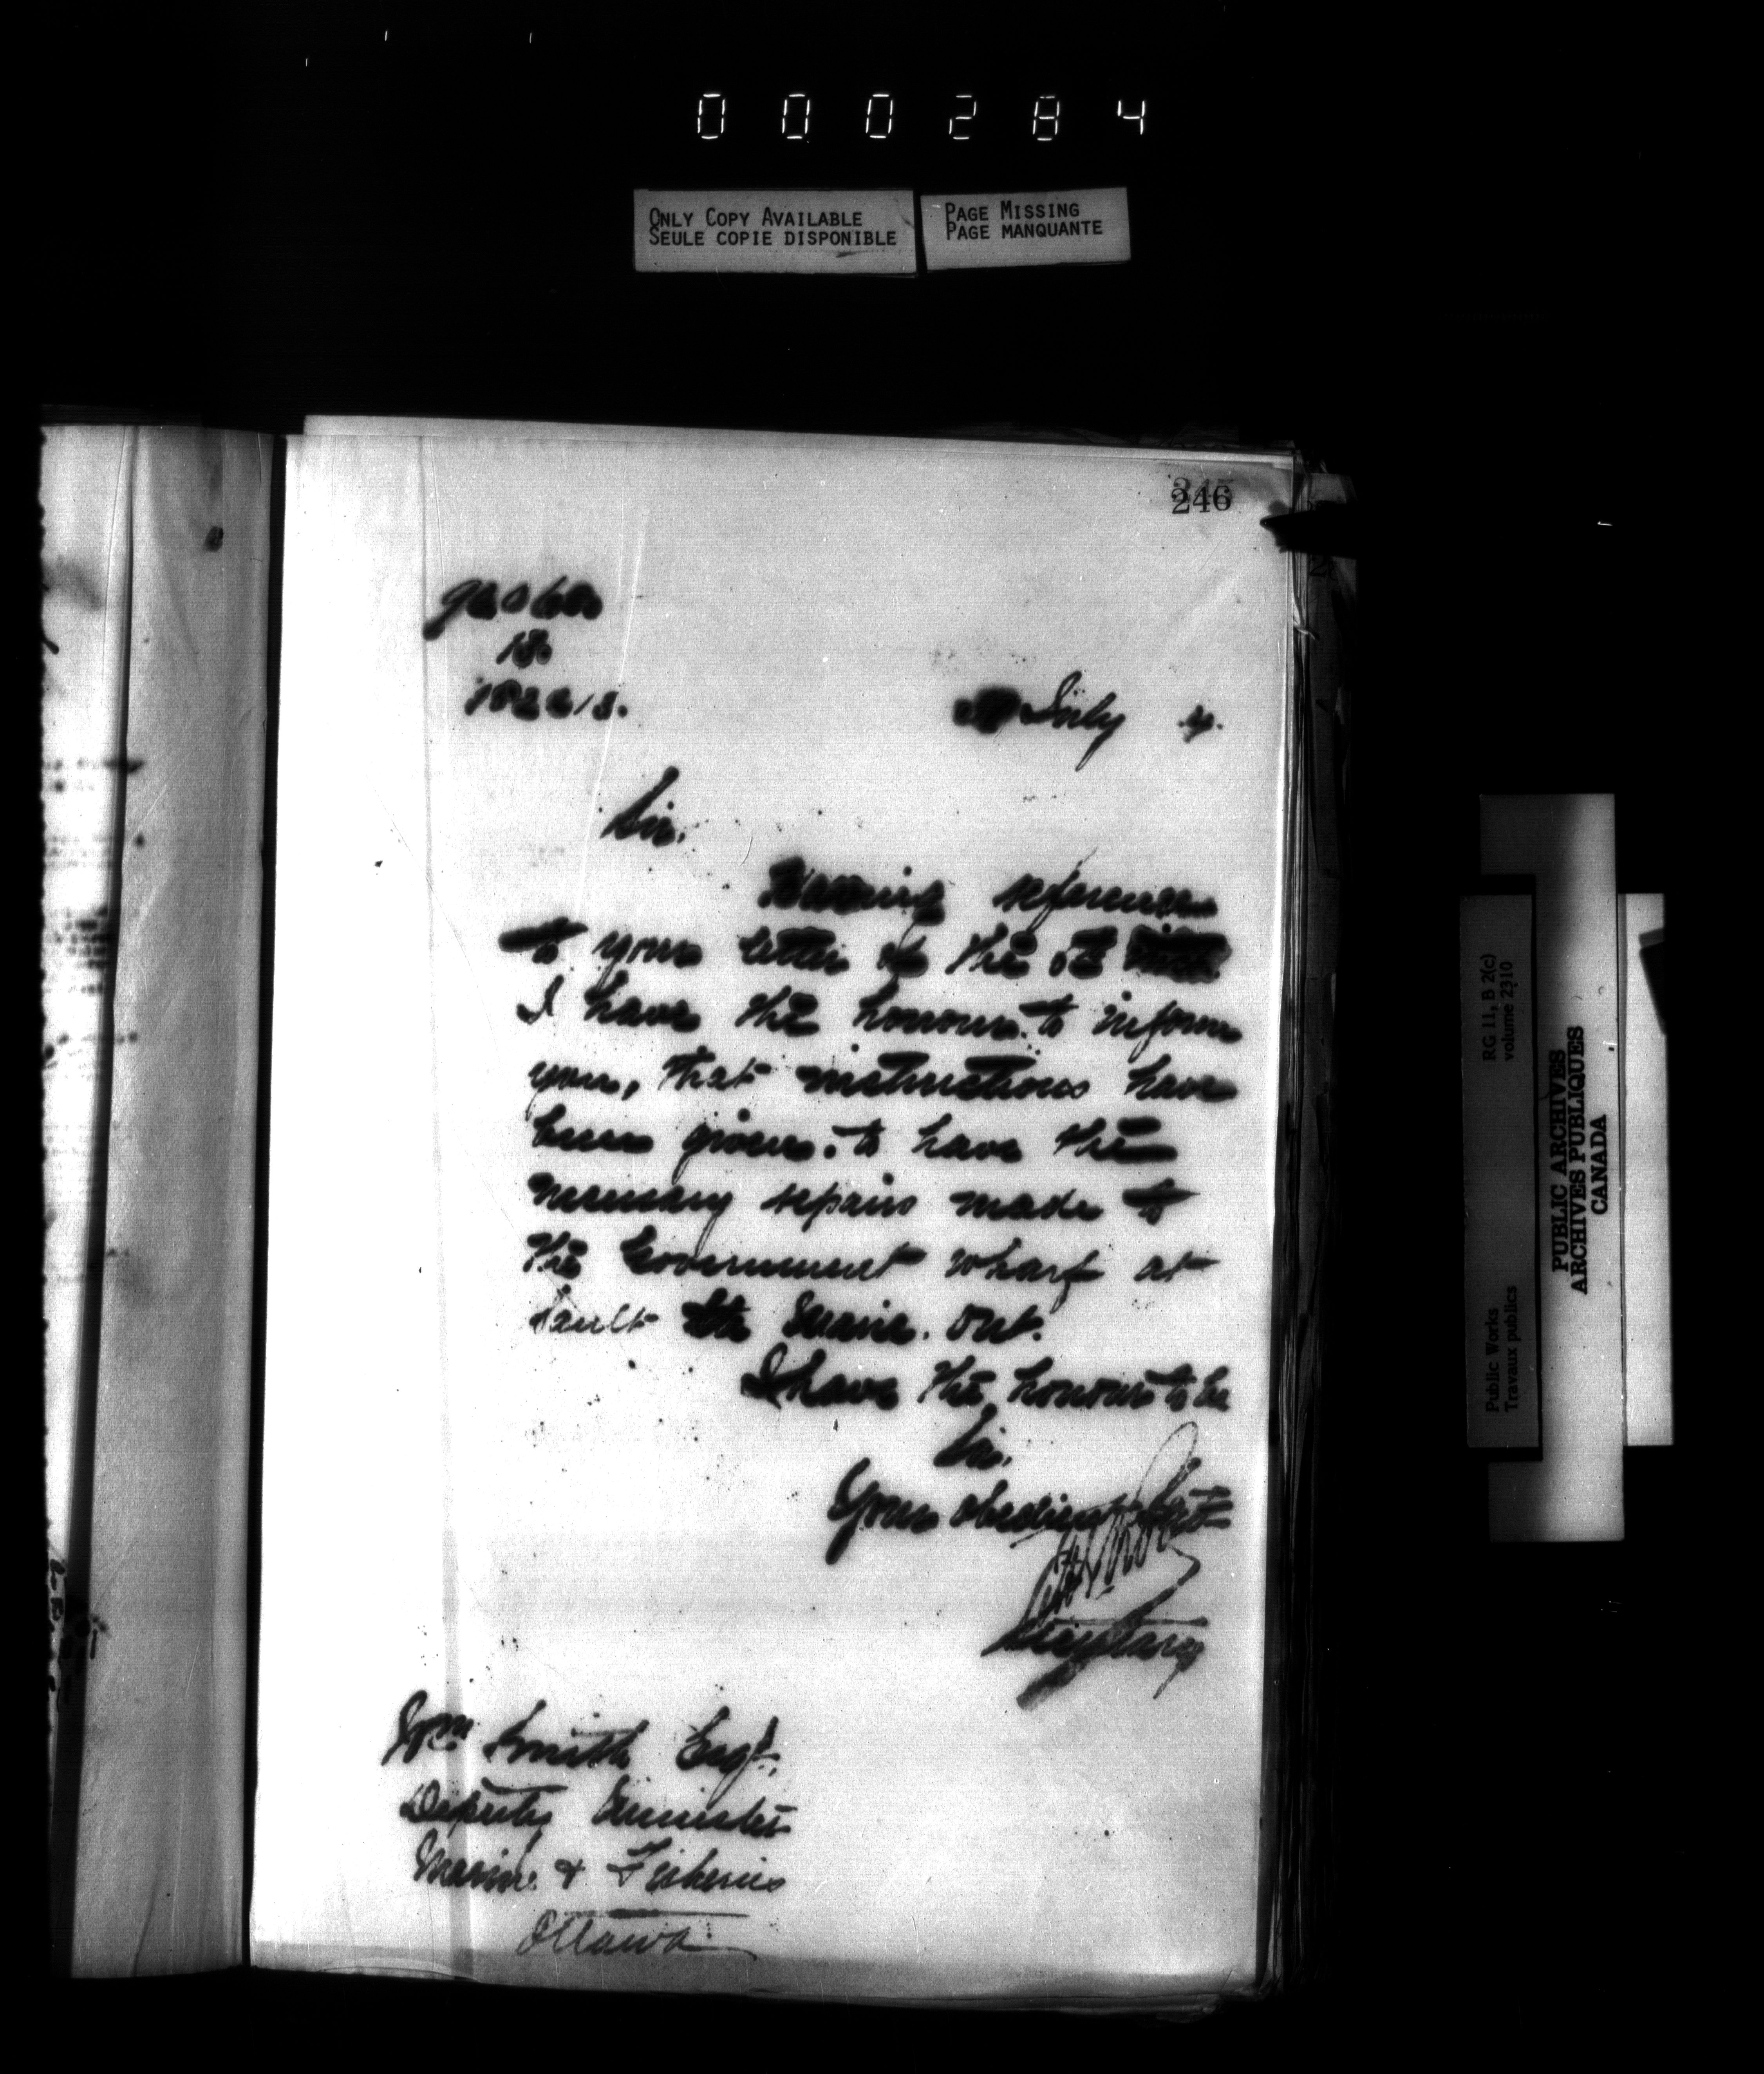 000284
ONLY COPY AVAILABLE
SEULE COPIE DISPONIBLE
PAGE MISSING
PAGE MANQUANTE
246
July
Sir.
Having reference
to your letter of the
I have the honour to inform
you, that instructions have
been given to have the
necessary repairs made to
the Government wharf at
Sault Ste Marie. Ont.
I have the honour to be
Sir.
Your obedient Servt
Secretary
Wm Smith Esqr.
Deputy Minister
Marine & Fisheries
Ottawa
RG 11, B 2(c)
volume 2310
Public Works
Travaux publics
PUBLIC ARCHIVES
ARCHIVES PUBLIQUES
CANADA